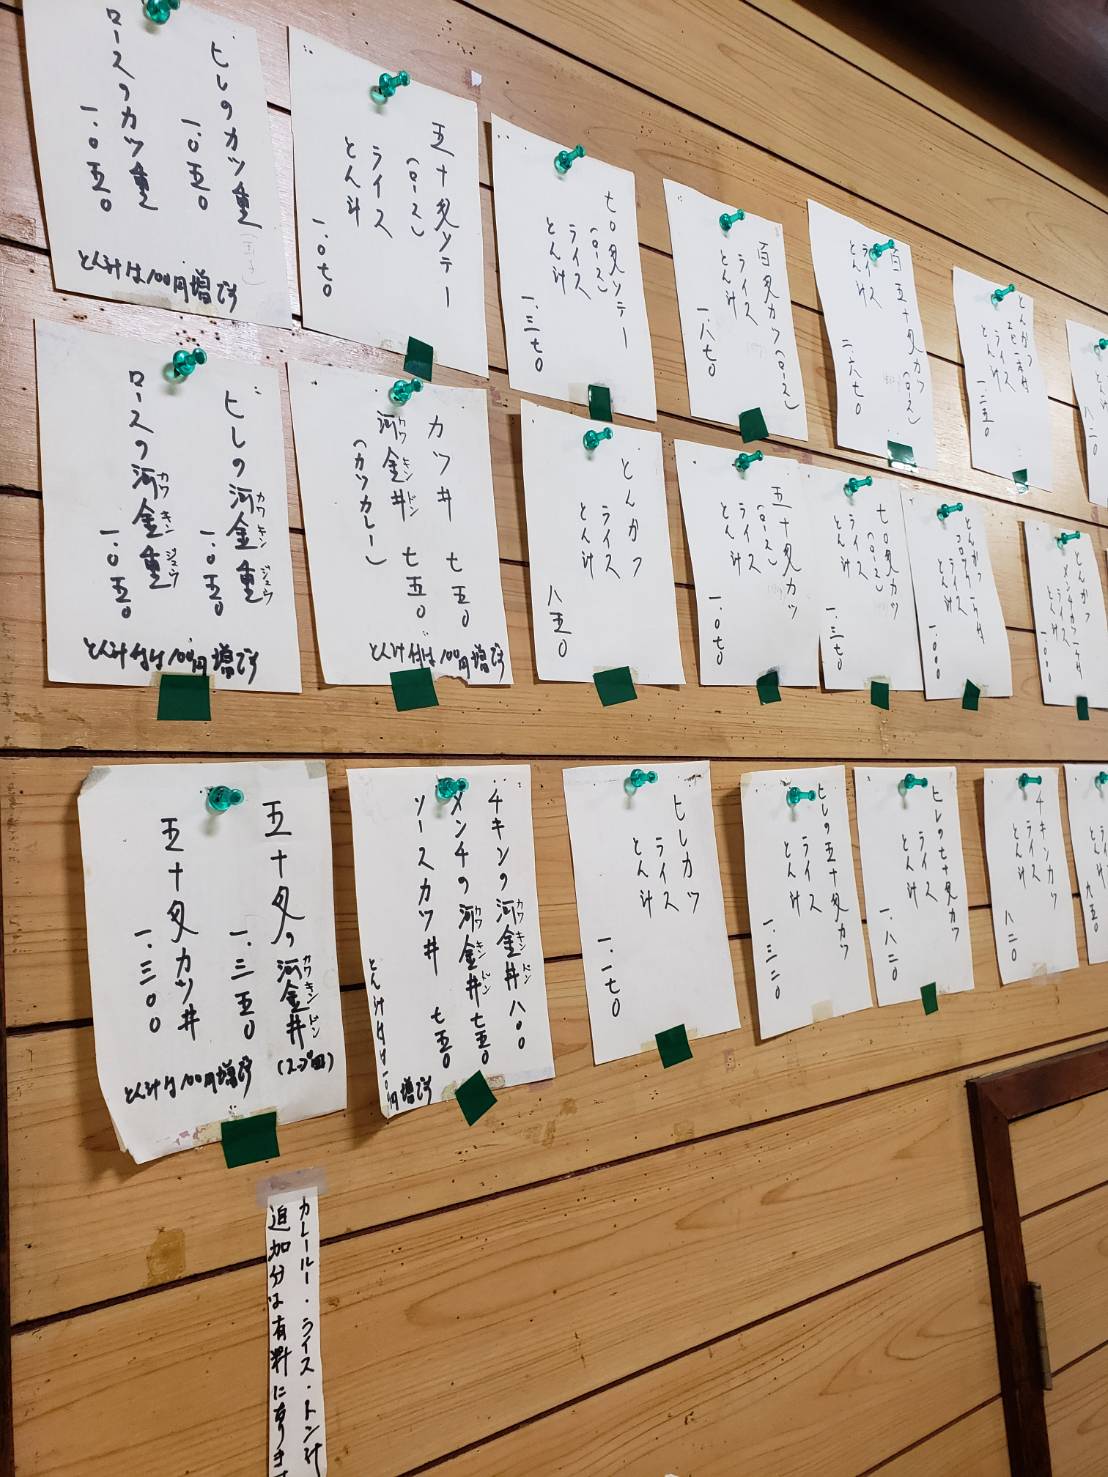 ヒレのカツ重
一.〇五〇
ロースのカツ重
一.〇五〇
とん汁は100円増です
五十匁ソテー
(ロース)
ライス
とん汁
一.〇七〇
七〇匁ソテー
(ロース)
ライス
とん汁
一.三七〇
百匁カツ(ロース)
ライス
とん汁
一.八七〇
百五十匁カツ(ロース)
ライス
とん汁
二.六七〇
とんかつ
エビ一本付
ライス
とん汁
一.二五〇
八二〇
ヒレの河金重
カワキンジュウ
一.〇五〇
ロースの河金重
カワキンジュウ
一.〇五〇
とん汁付は100円増です
カツ丼 七五〇
河金丼 七五〇
カワキンドン
(カツカレー)
とん汁付は100円増です
とんかつ
ライス
とん汁
八五〇
五十匁カツ
(ロース)
ライス
とん汁
一.〇七〇
七〇匁カツ
(ロース)
ライス
とん汁
一.三七〇
とんかつ
コロッケ一ケ付
ライス
とん汁
一.〇〇〇
とんかつ
メンチカツ一ケ付
ライス
とん汁
一.〇〇〇
五十匁の河金丼
カワキンドン
(スープ皿)
一.三五〇
五十匁カツ丼
一.三〇〇
とん汁は100円増です
チキンの河金丼 八〇〇
カワキンドン
メンチの河金丼 七五〇
カワキンドン
ソースカツ丼 七五〇
とん汁付は100円増です
ヒレカツ
ライス
とん汁
一.一七〇
ヒレの五十匁カツ
ライス
とん汁
一.三二〇
ヒレの七十匁カツ
ライス
とん汁
一.八二〇
チキンカツ
ライス
とん汁
八二〇
ライス
とん汁
九五〇
カレールー・ライス・トン汁
追加分は有料になりま